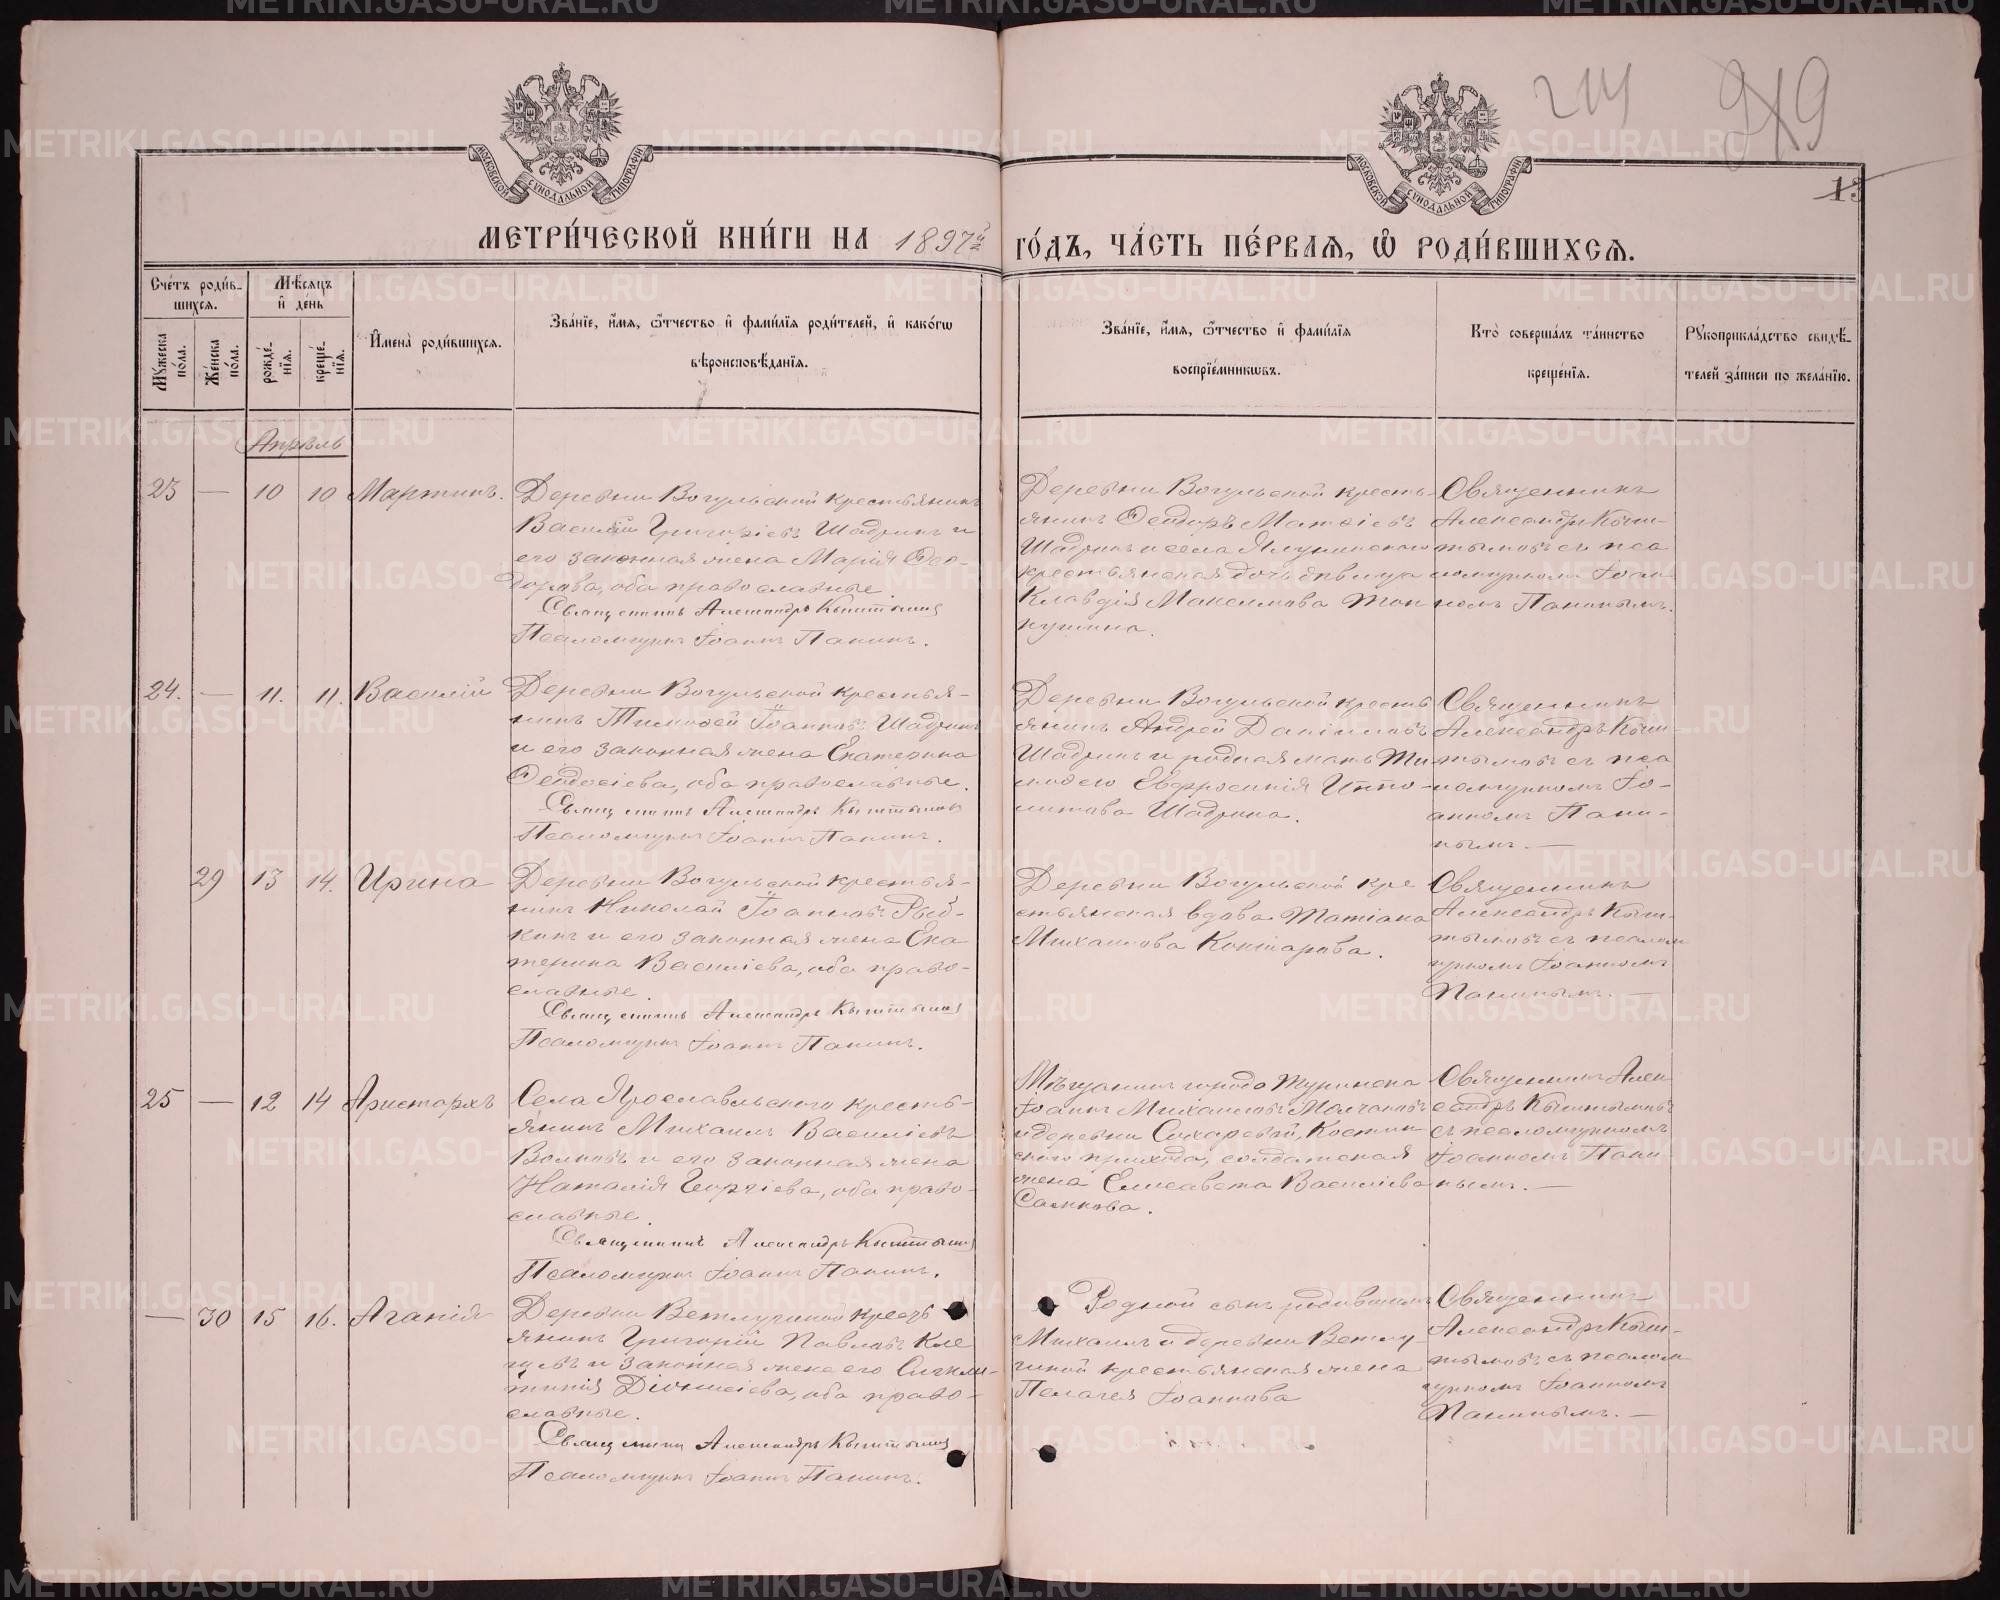 214
919
13
МОСКОВСКОЙ СУНОДАЛЬНОЙ ТИПОГРАФИИ
МОСКОВСКОЙ СУНОДАЛЬНОЙ ТИПОГРАФИИ
МЕТРИ́ЧЕСКОЙ КНИ́ГИ НА 1897й
ГО́ДЪ, ЧА́СТЬ ПЕ́РВАЯ, Ѡ РОДИ́ВШИХСЯ.
Сче́тъ роди́в-
шихся.
Мѣ́сяцъ
и де́нь
Му́жеска по́ла.
Же́нска по́ла.
рожде́-
нїя.
креще́-
нїя.
И́мена роди́вшихся.
Зва́нїе, и́мя, ѻ҆́тчество и фами́лїя роди́телей, и како́гѡ
вѣроисповѣ́данїя.
Зва́нїе, и́мя, ѻ҆́тчество и фами́лїя
воспрїе́мникѡвъ.
Кто̀ соверша́лъ та́инство
креще́нїя.
Рукоприкла́дство свидѣ́-
телей за́писи по жела́нїю.
Апрѣль
23 — 10 10 Мартинъ.
Деревни Вогульской крестьянинъ
Василій Григоріевъ Шадринъ и
его законная жена Марія Ѳео-
дорова, оба православные.
Священникъ Александръ Кыштымовъ
Псаломщикъ Іоаннъ Панинъ.
Деревни Вогульской кресть-
янинъ Ѳеодоръ Матѳіевъ
Шадринъ и села Ялунинского
крестьянская дочь дѣвица
Клавдія Максимова
Священникъ
Александръ Кыш-
тымовъ съ пса
ломщикомъ Іоан-
номъ Панинымъ.
24. — 11. 11. Василій
Деревни Вогульской крестья-
нинъ Тимоѳей Іоанновъ Шадринъ
и его законная жена Екатерина
Ѳеодосіева, оба православные.
Священникъ Александръ Кыштымовъ
Псаломщикъ Іоаннъ Панинъ.
Деревни Вогульской кресть
янинъ Андрей Даніиловъ
Шадринъ и родная мать Ти-
моѳею Евфросинія Иппо-
литова Шадрина.
Священникъ
Александръ Кыш-
тымовъ съ пса
ломщикомъ Іо-
анномъ Пани-
нымъ. —
29 13 14. Ирина
Деревни Вогульской крестья-
нинъ Николай Іоанновъ Рыб-
кинъ и его законная жена Ека
терина Василіева, оба право-
славные.
Священникъ Александръ Кыштымовъ
Псаломщикъ Іоаннъ Панинъ.
Деревни Вогульской кре
стьянская вдова Татіана
Михаилова
Священникъ
Александръ Кыш-
тымовъ съ псалом
щикомъ Іоанномъ
Панинымъ. —
25 — 12 14 Аристархъ
Села Ярославльского кресть-
янинъ Михаилъ Василіевъ
Волковъ и его законная жена
Наталія Георгіева, оба право-
славные.
Священникъ Александръ Кыштымовъ
Псаломщикъ Іоаннъ Панинъ.
Мѣщанинъ города Туринска
Іоаннъ Михаиловъ Молчановъ
и деревни Сухаревой, Костин-
ского прихода, солдатская
жена Елисавета Василіева
Священникъ Алек
сандръ Кыштымовъ
съ псаломщикомъ
Іоанномъ Пани-
нымъ. —
— 30 15 16. Аганія
Деревни Ветлугиной кресть
янинъ Григорій Павловъ
и законная жена его
Діонисіева, оба право-
славные.
Священникъ Александръ Кыштымовъ
Псаломщикъ Іоаннъ Панинъ.
Родной сынъ родившихъ
Михаилъ и деревни Ветлу
гиной крестьянская жена
Пелагея Іоаннова
Священникъ
Александръ Кыш-
тымовъ съ псалом
щикомъ Іоанномъ
Панинымъ. —
METRIKI.GASO-URAL.RU